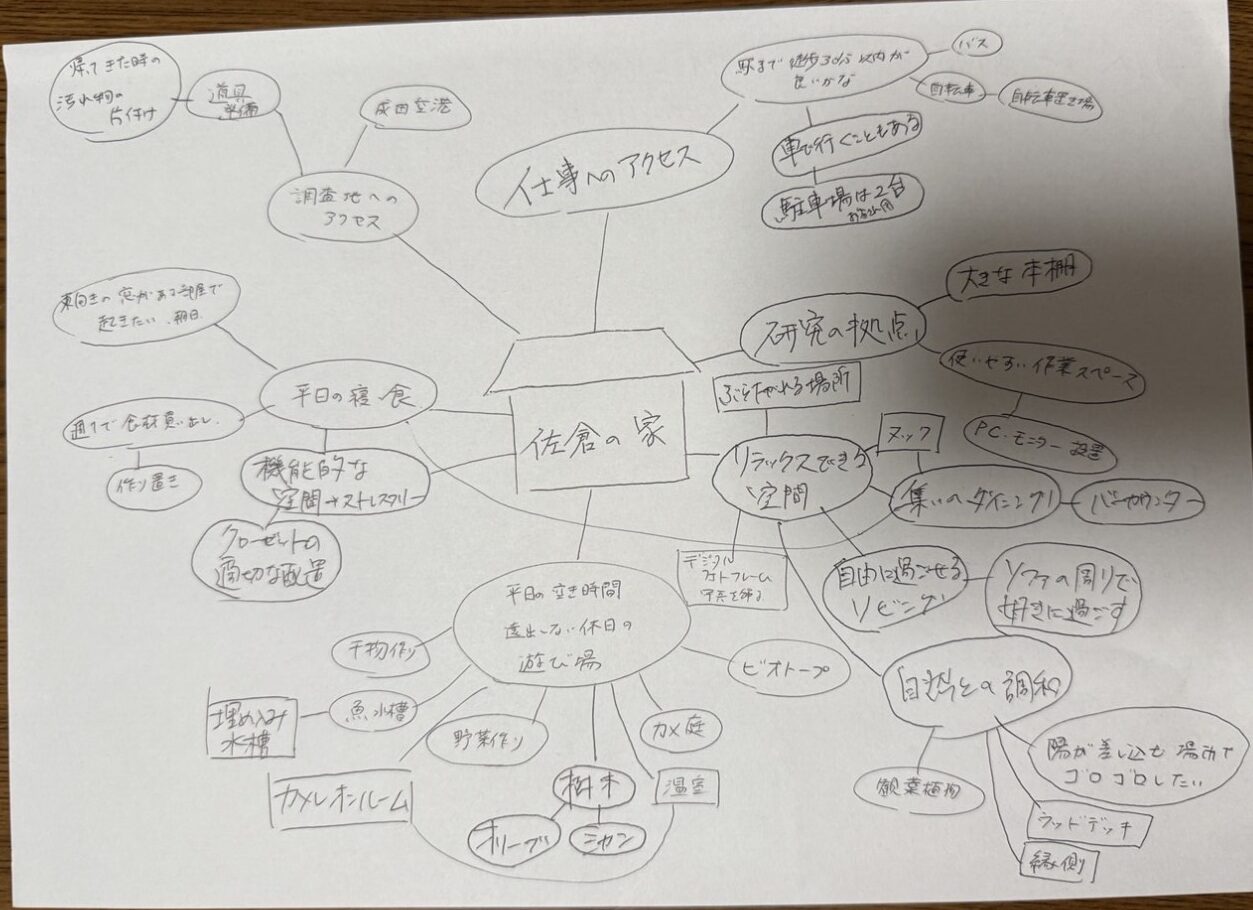 帰ってきた時の
汚れ物の
片付け
道具
準備
成田空港
調査地への
アクセス
仕事へのアクセス
駅まで徒歩30分以内が
良いかな
バス
自転車
自転車置き場
車で行くこともある
駐車場は2台
東向きの窓がある部屋で
起きたい、朝日
平日の寝・食
週1で食材買い出し
作り置き
機能的な
空間→ストレスフリー
クローゼットの
適切な配置
佐倉の家
研究の拠点
大きな本棚
使いやすい作業スペース
PC・モニター設置
ぶら下がれる場所
リラックスできる
空間
ヌック
集いへダイニング
バーカウンター
デジタル
フォトフレーム
写真を飾る
自由に過ごせる
リビング
ソファの周りで
好きに過ごす
自然との調和
陽が差し込む場所で
ゴロゴロしたい
ウッドデッキ
縁側
観葉植物
平日の空き時間
遠出しない休日の
遊び場
干物作り
魚水槽
埋め込み
水槽
カメレオンルーム
野菜作り
樹木
オリーブ
ミカン
温室
カメ庭
ビオトープ